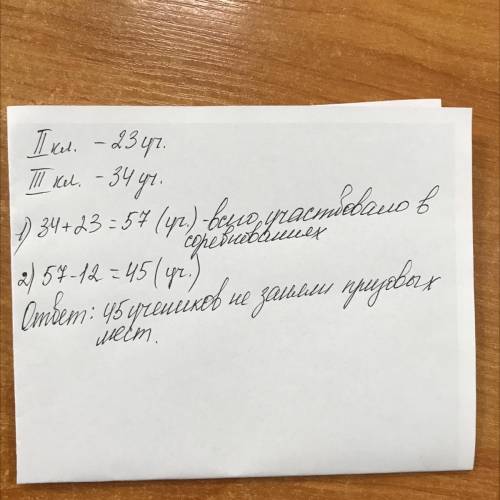 II кл. - 23 уч.
III кл. - 34 уч.
1) 34+23=57 (уч.) - всего участвовало в
соревнованиях
2) 57-12=45 (уч.)
Ответ: 45 учеников не заняли призовых
мест.